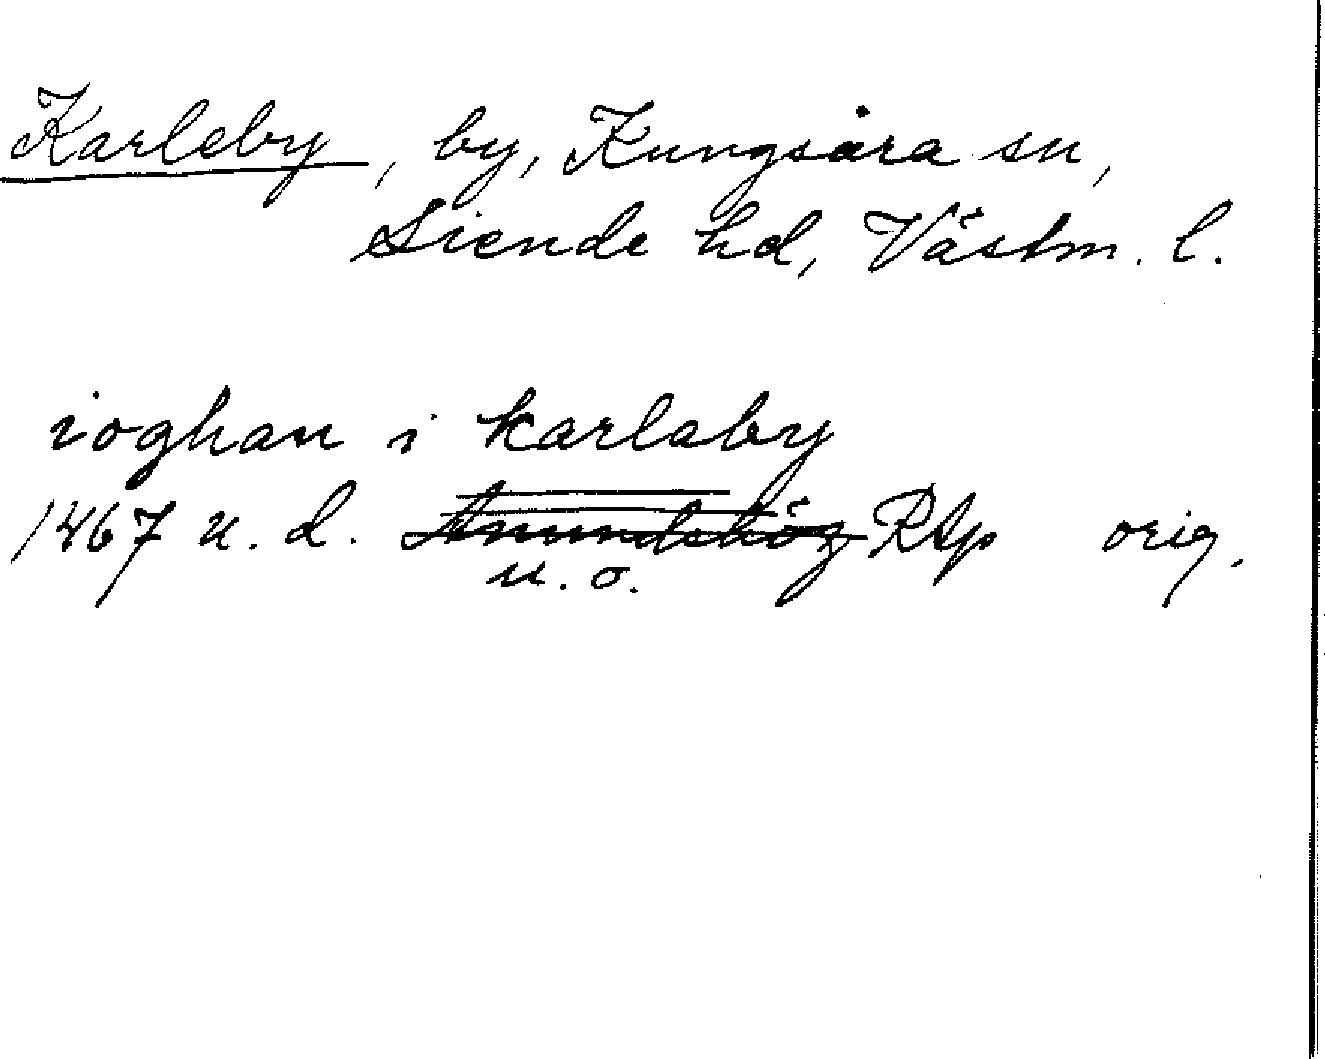 Karleby, by, Kungsåra sn,
Siende hd, Västm. l.
ioghan i karlaby
1467 u. d. Anundshög RAp orig.
u. o.